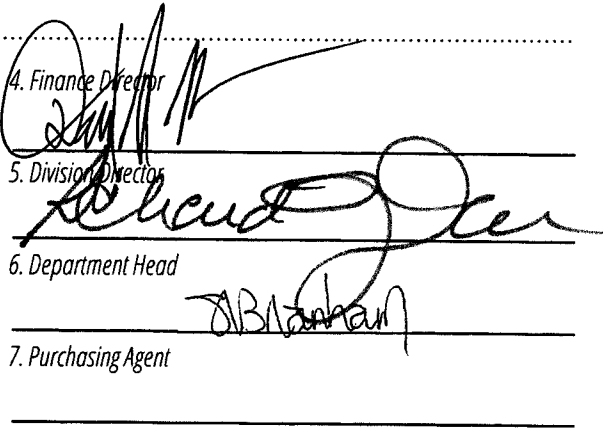 4. Finance Director
5. Division Director
Richard
6. Department Head
JBranham
7. Purchasing Agent